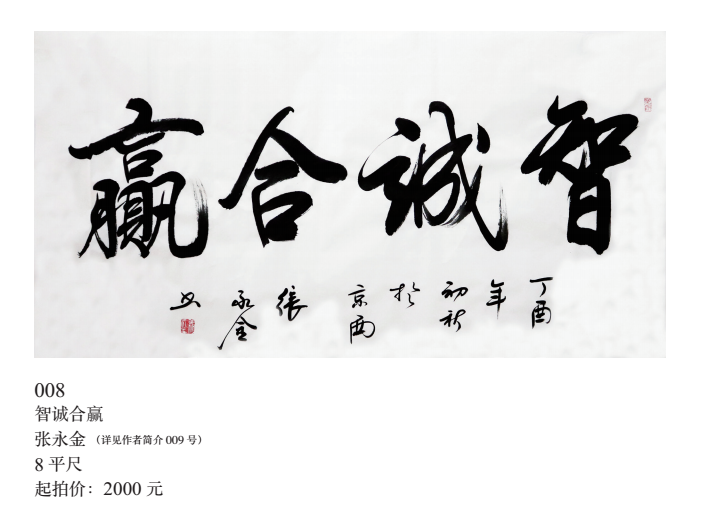 智誠合贏
丁酉
年
初秋
於
京西
張
永金
书
008
智诚合赢
张永金（详见作者简介 009 号）
8 平尺
起拍价：2000 元